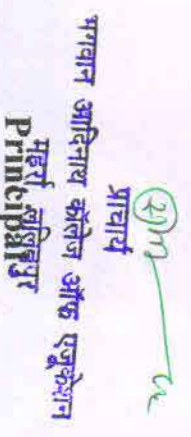 प्राचार्य
भगवान आदिनाथ कॉलेज ऑफ एजूकेशन
महर्रा ललितपुर
Principal